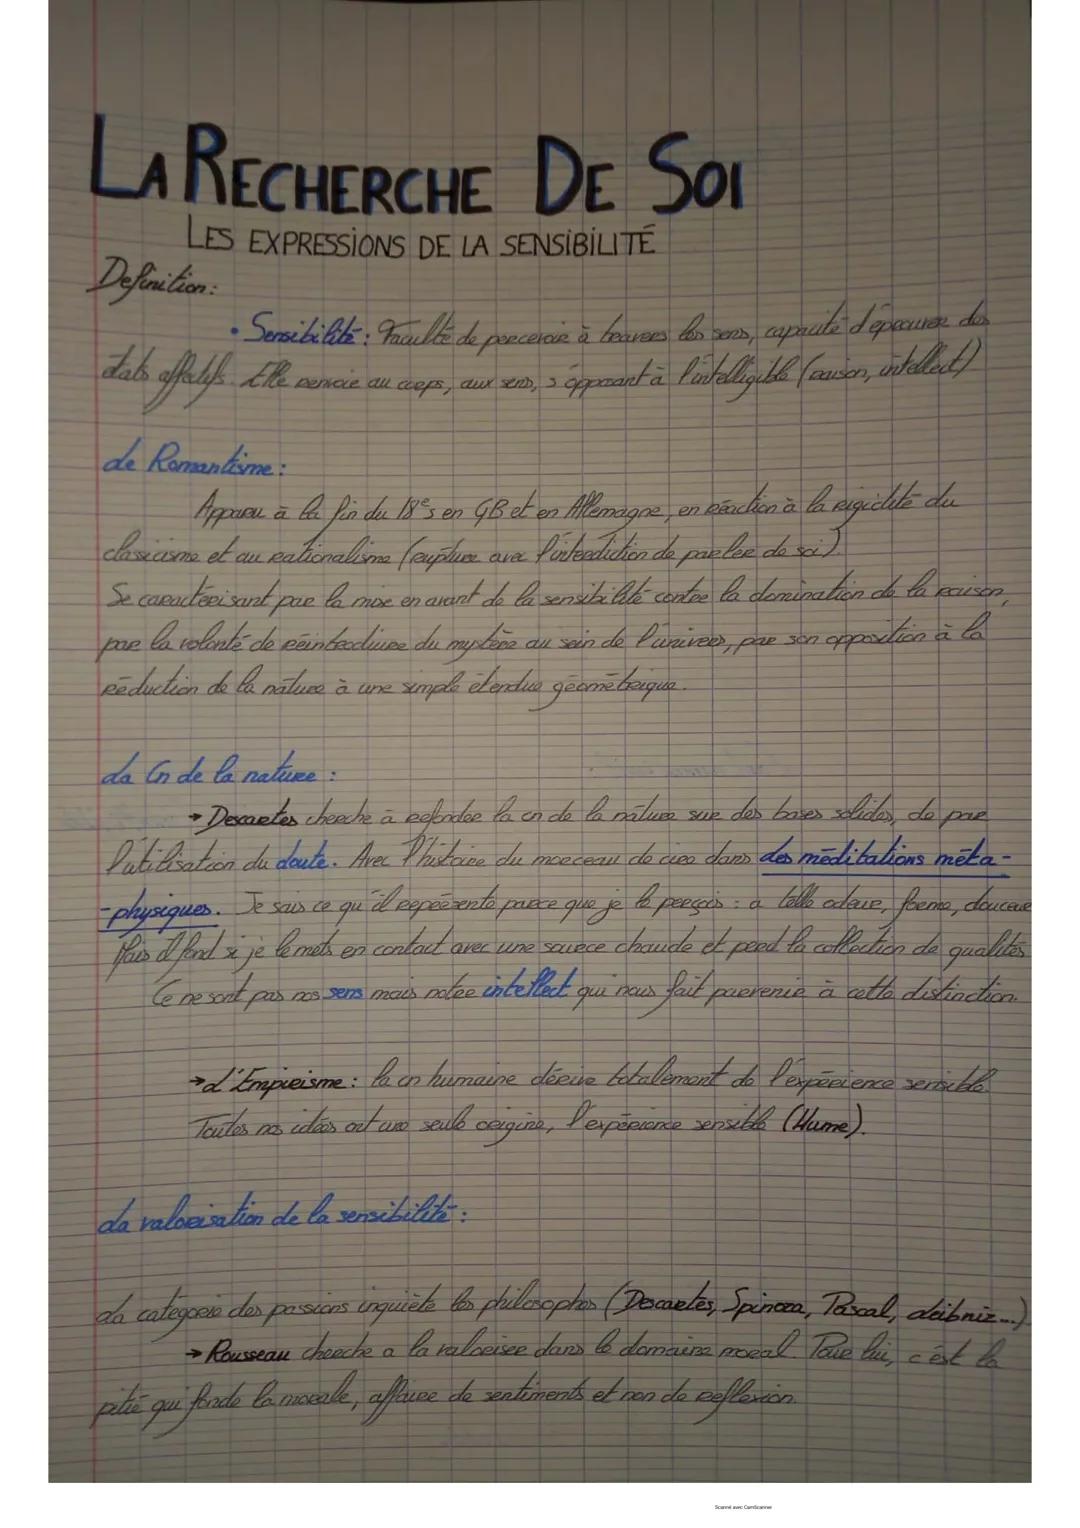 LA RECHERCHE DE SOI
LES EXPRESSIONS DE LA SENSIBILITÉ
Definition:
• Sensibilité : Faculté de percevoir à travers les sens, capacité d'éprouver des
états affectifs. Elle renvoie au corps, aux sens, s'opposant à l'intelligible (raison, intellect)
Le Romantisme :
Apparu à la fin du 18e s en GB et en Allemagne, en réaction à la rigidité du
clasicisme et au rationalisme (rupture avec l'interdiction de parler de soi).
Se caractérisant par la mise en avant de la sensibilité contre la domination de la raison,
par la volonté de réintroduire du mystère au sein de l'univers, par son opposition à la
réduction de la nature à une simple étendue géométrique.
La Cn de la nature :
→ Descartes cherche à refonder la cn de la nature sur des bases solides, de par
l'utilisation du doute. Avec l'histoire du morceau de cire dans des méditations méta-
-physiques. Je sais ce qu'il représente parce que je le perçois : a telle odeur, forme, douceur
Mais il fond si je le mets en contact avec une source chaude et perd la collection de qualités
Ce ne sont pas nos sens mais notre intellect qui nous fait parvenir à cette distinction.
→ L'Empirisme : la cn humaine dérive totalement de l'expérience sensible
Toutes nos idées ont une seule origine, l'expérience sensible (Hume).
La valorisation de la sensibilité :
La catégorie des passions inquiète les philosophes (Descartes, Spinoza, Pascal, Leibniz...)
→ Rousseau cherche a la valoriser dans le domaine moral. Pour lui, c'est la
pitié qui fonde la morale, affaire de sentiments et non de reflexion.
Scanné avec CamScanner